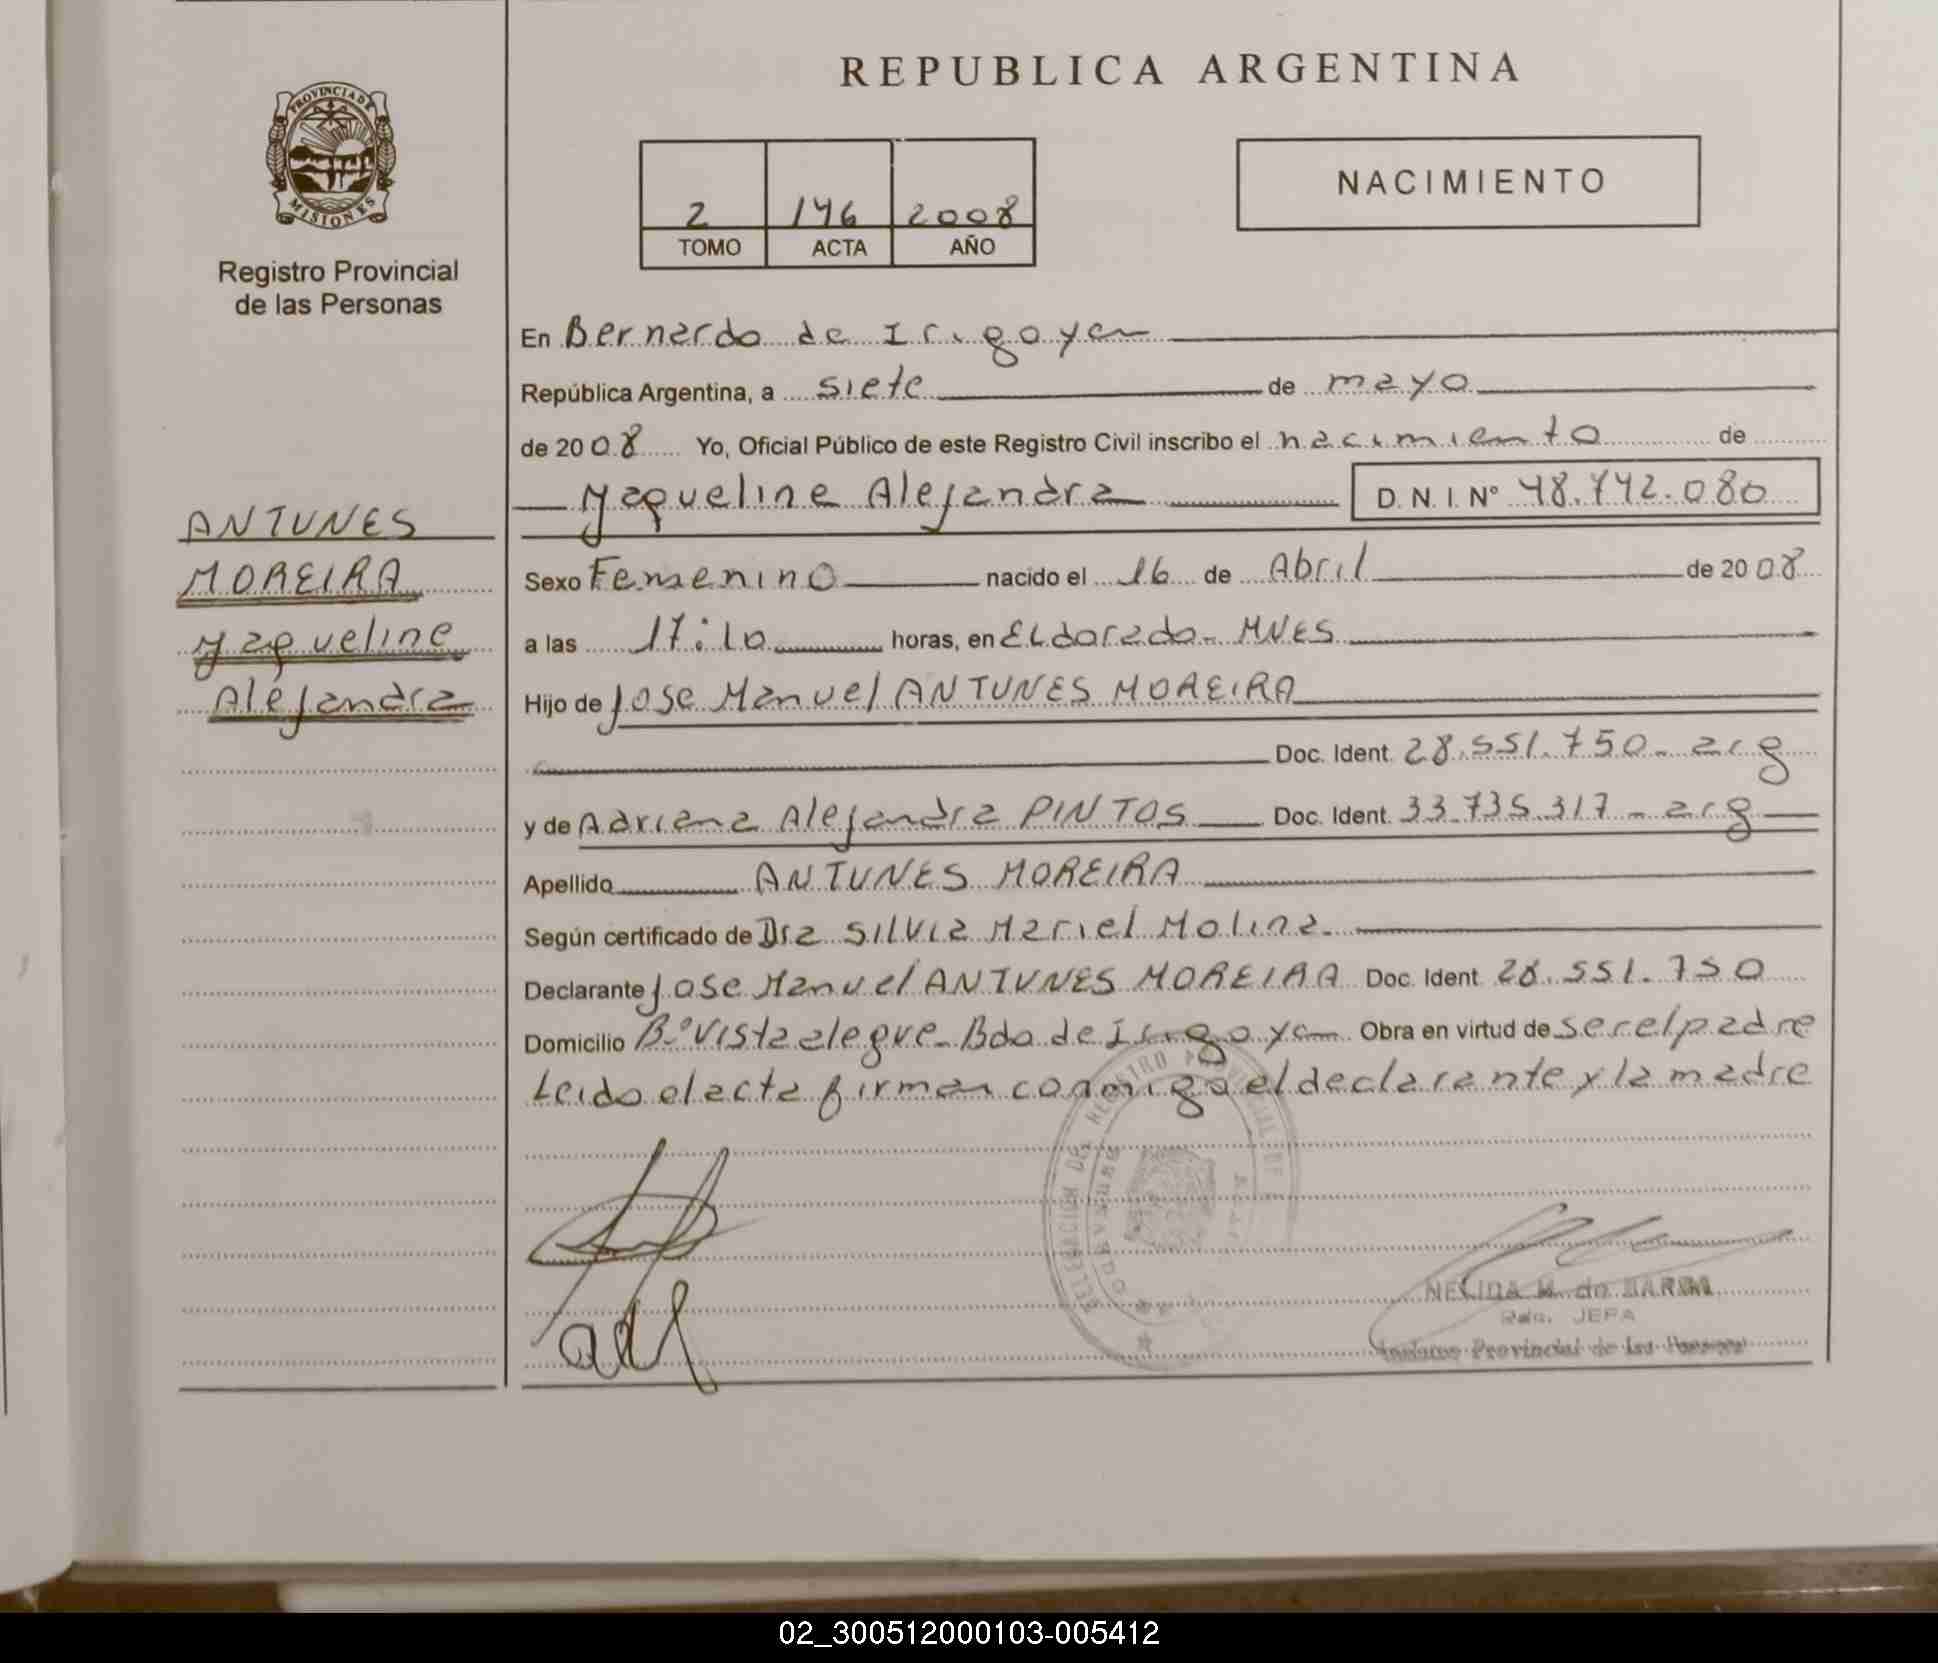 REPUBLICA ARGENTINA
PROVINCIA DE MISIONES
Registro Provincial
de las Personas
2 146 2008
TOMO ACTA AÑO
NACIMIENTO
En Bernardo de Irigoyen
República Argentina, a siete de mayo
de 2008 Yo, Oficial Público de este Registro Civil inscribo el nacimiento de
Yaqueline Alejandra D. N. I. N° 48.742.080
ANTUNES
MOREIRA
Yaqueline
Alejandra
Sexo Femenino nacido el 16 de Abril de 2008
a las 17:10 horas, en Eldorado - MNES
Hijo de Jose Manuel ANTUNES MOREIRA
Doc. Ident. 28.551.750 - arg
y de Adriana Alejandra PINTOS Doc. Ident. 33.735.317 - arg
Apellido ANTUNES MOREIRA
Según certificado de Dra Silvia Mariel Molina.
Declarante Jose Manuel ANTUNES MOREIRA Doc. Ident. 28.551.750
Domicilio B° Vista alegre - Bdo de Irigoyen Obra en virtud de ser el padre
Leido el acta firman conmigo el declarante y la madre
NELIDA M. de
JEFA
Provincial de las
02_300512000103-005412